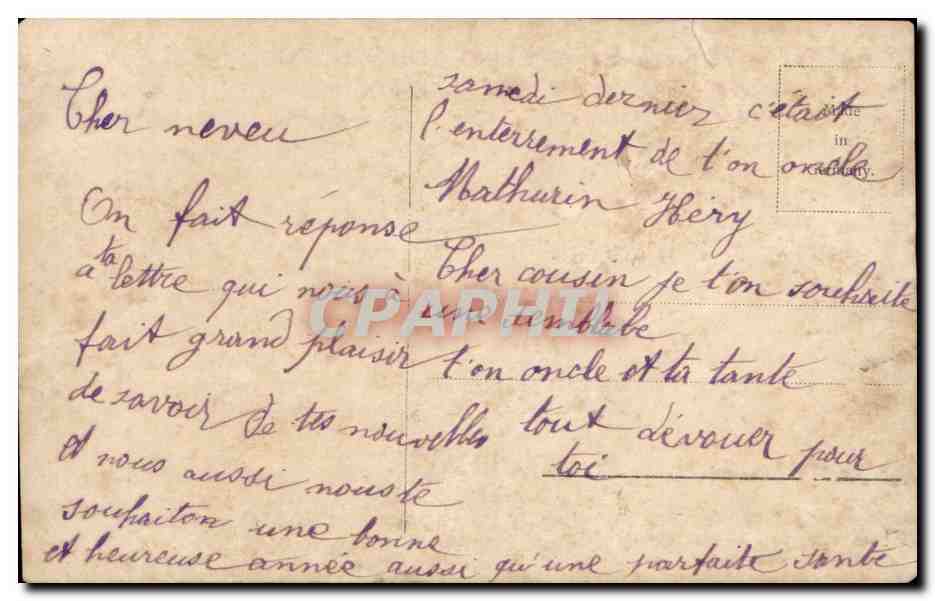 Cher neveu
On fait réponse
a ta lettre qui nous à
fait grand plaisir
de savoir de tes nouvelles
et nous aussi nous te
souhaiton une bonne
et heureuse année aussi qu'une parfaite santé
samedi dernier c'était
l'enterrement de t'on oncle
Mathurin Héry
Cher cousin je t'on souhaite
une semblabe
t'on oncle et ta tante
tout dévouer pour
toi
Made
in
Germany.
CPAPHIL